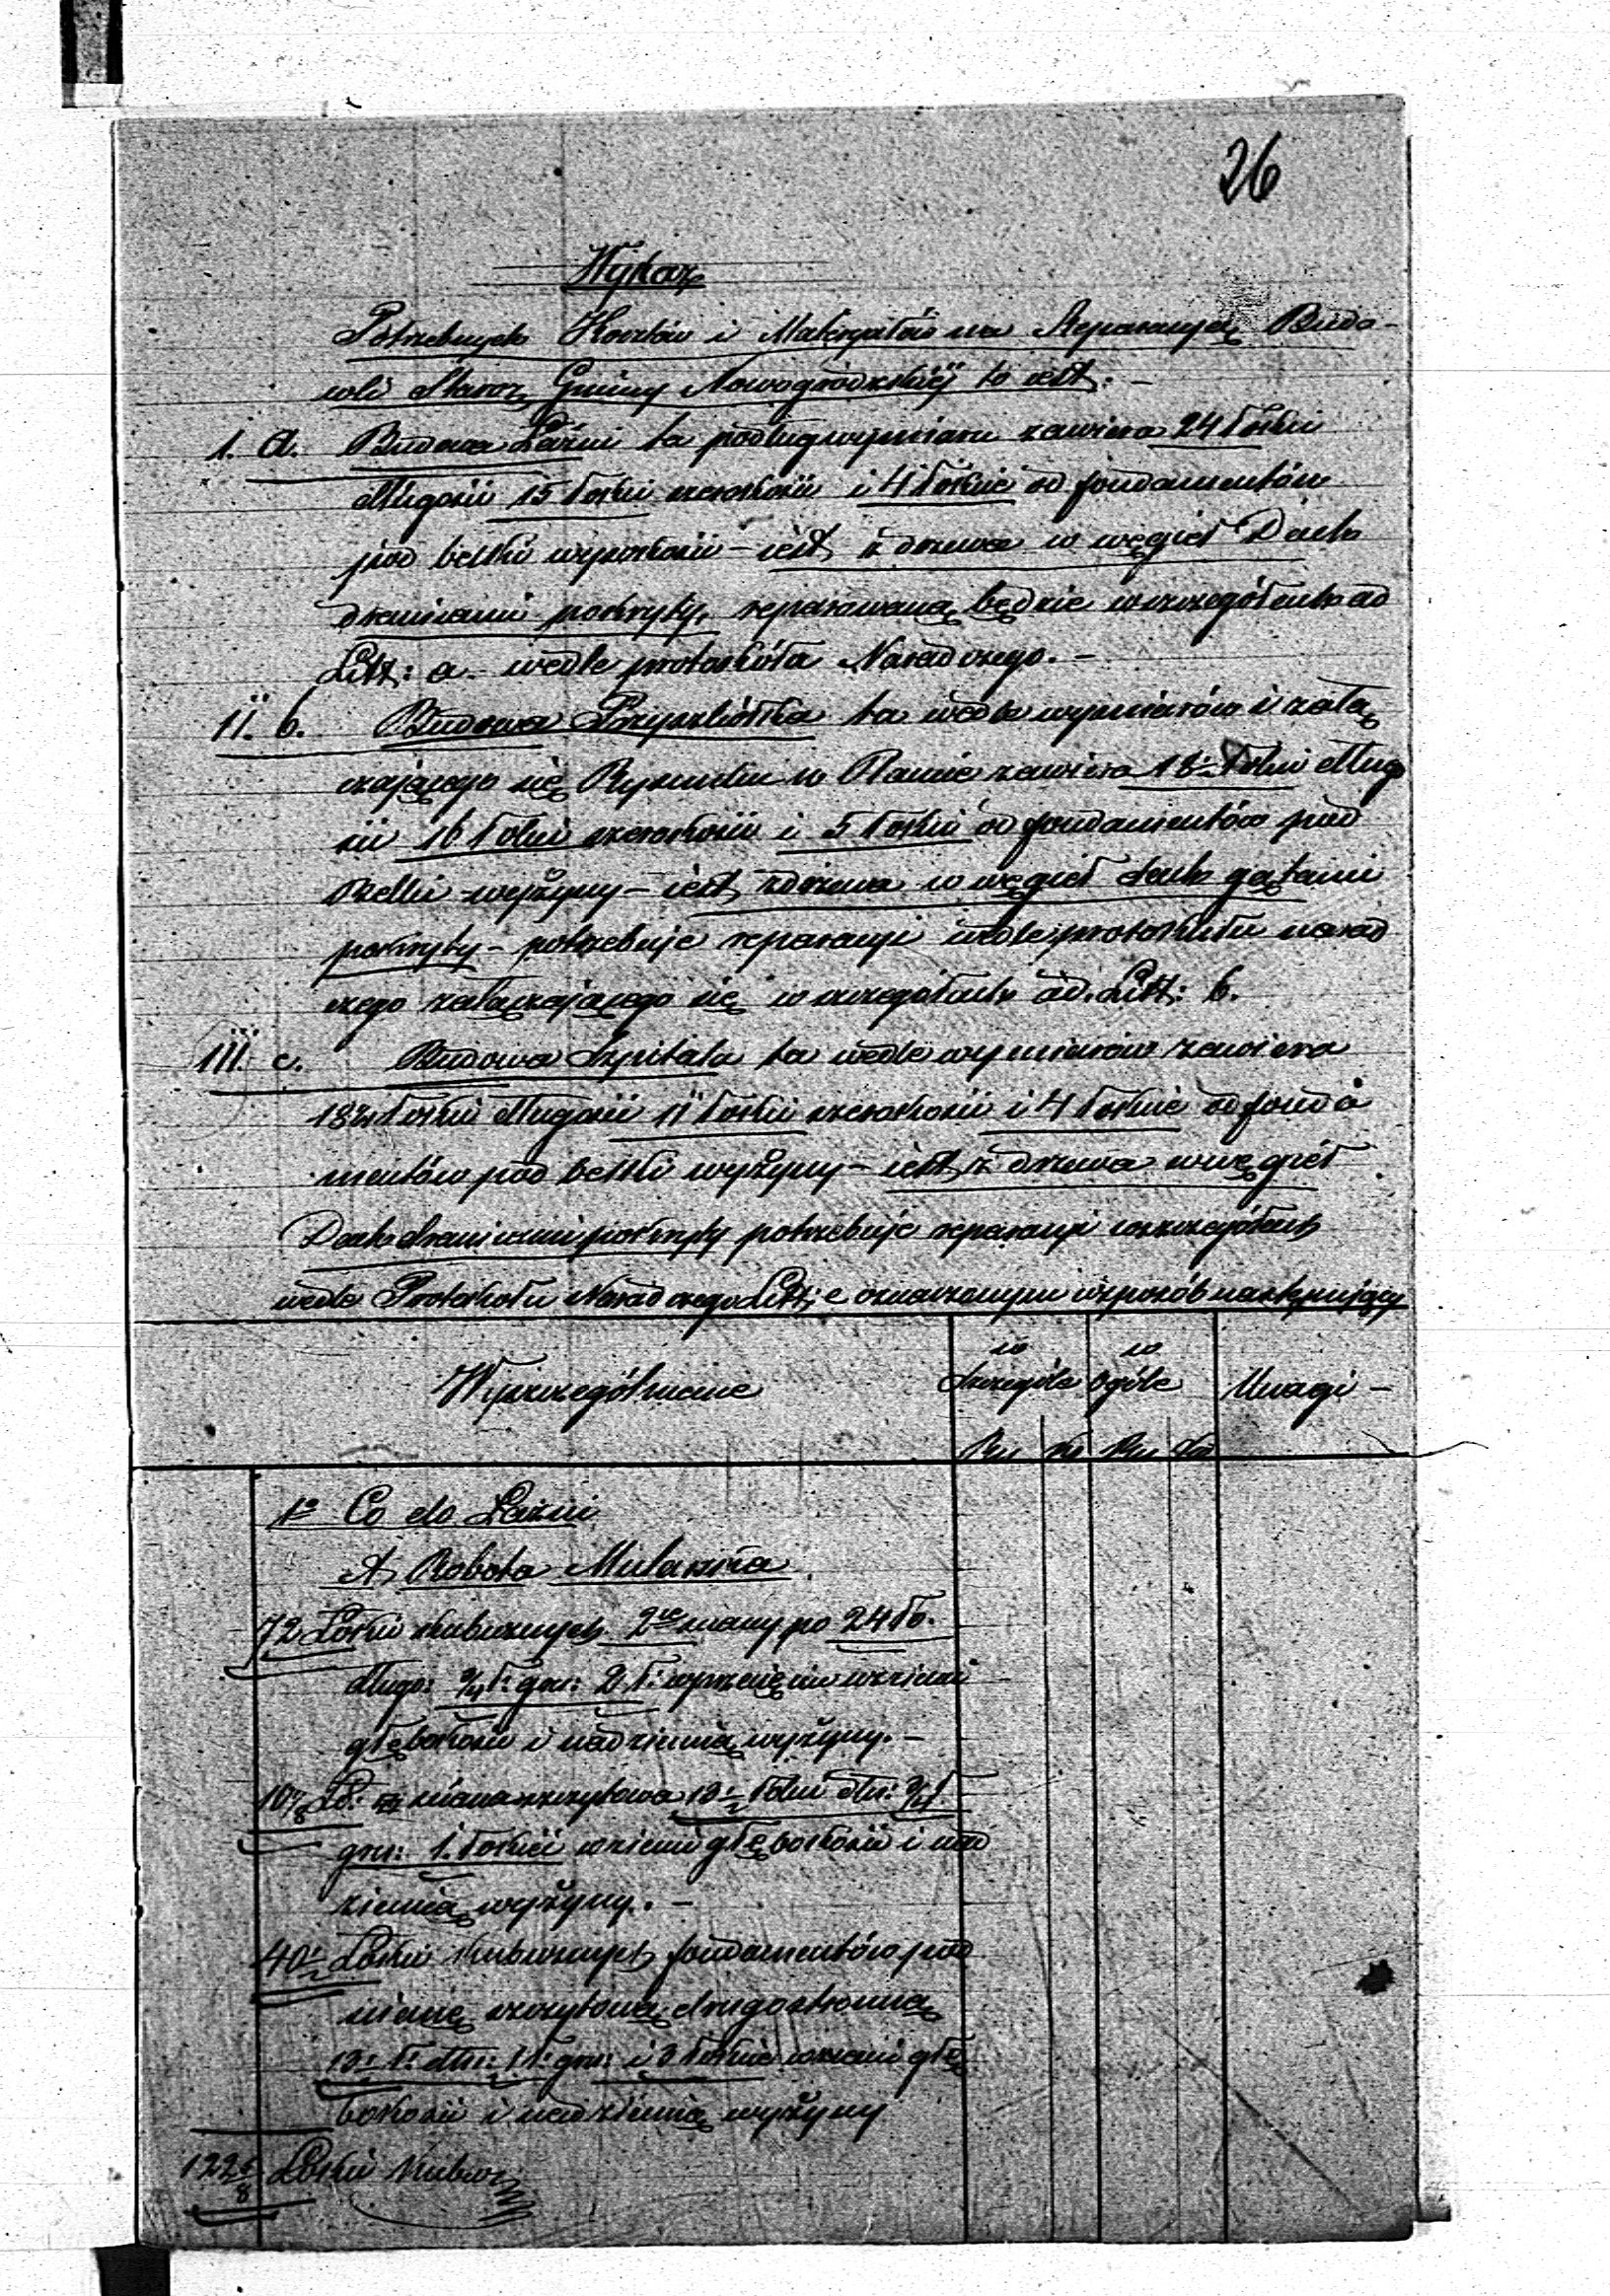 26
Wykaz
Potrzebnych Kosztów i Materyałów na Reparacyę Budo-
wli Staroz. Gminy Nowogrodzkiéj to iest: -
1. a. Budowa Łaźni ta podług wymiaru zawiera 24 Łokci
długości 15 Łokci szerokości i 4 Łokcie od fondamentów
pod belki wysokości - iest z drzewa w węgieł Dach
dranicami pokryty, reparowaną będzie w szczegółach ad
Litt: a. wedle protokółu Naradczego. -
II. b. Budowa Przyszkółka ta wedle wymiarów i załą
czającego się Rysunku w Planie zawiera 18½ Łokci długo
ści 16 Łokci szerokości i 5 Łokci od fondamentów pod
Belki wyżyny - iest z drzewa w węgieł dach gątami
pokryty - potrzebuje reparacyi wedle protokułu narad
czego załączającego się w szczegółach ad. Litt: b.
III. c. Budowa Szpitala ta wedle wymiarów zawiera
18½ Łokci długości 11 Łokci szerokości i 4 Łokcie od fonda
mentów pod belki wyżyny - iest z drzewa w węgieł
Dach dranicami pokryty potrzebuje reparacyi w szczegółach
wedle Protokołu Naradczego Litt: c oznaczonym w sposób następujący
Wyszczególnienie
w Szczególe
w Ogóle
Uwagi -
Ru. ko Ru. ko
1o Co do Łaźni
A, Robota Mularska
72 Łokci kubicznych 2ie sciany po 24 Ło.
długo: ¾ Ł: gru: 2 Ł: w ziemi
głębokości i nad ziemią wyżyny. -
10⅛ Ło: sciana szczytowa 13½ Łokci dłu: ¾ Ł
gru: 1. Łokieć w ziemi głębokości i nad
ziemią wyżyny. -
40½ Łokci kubicznych fondamentów pod
scianę szczytową drugostronną
13½ Ł: dłu: 1 Ł: gru: i 3 Łokcie w ziemi głę
bokości i nad ziemią wyżyny
122⅝ Łokci Kubicz